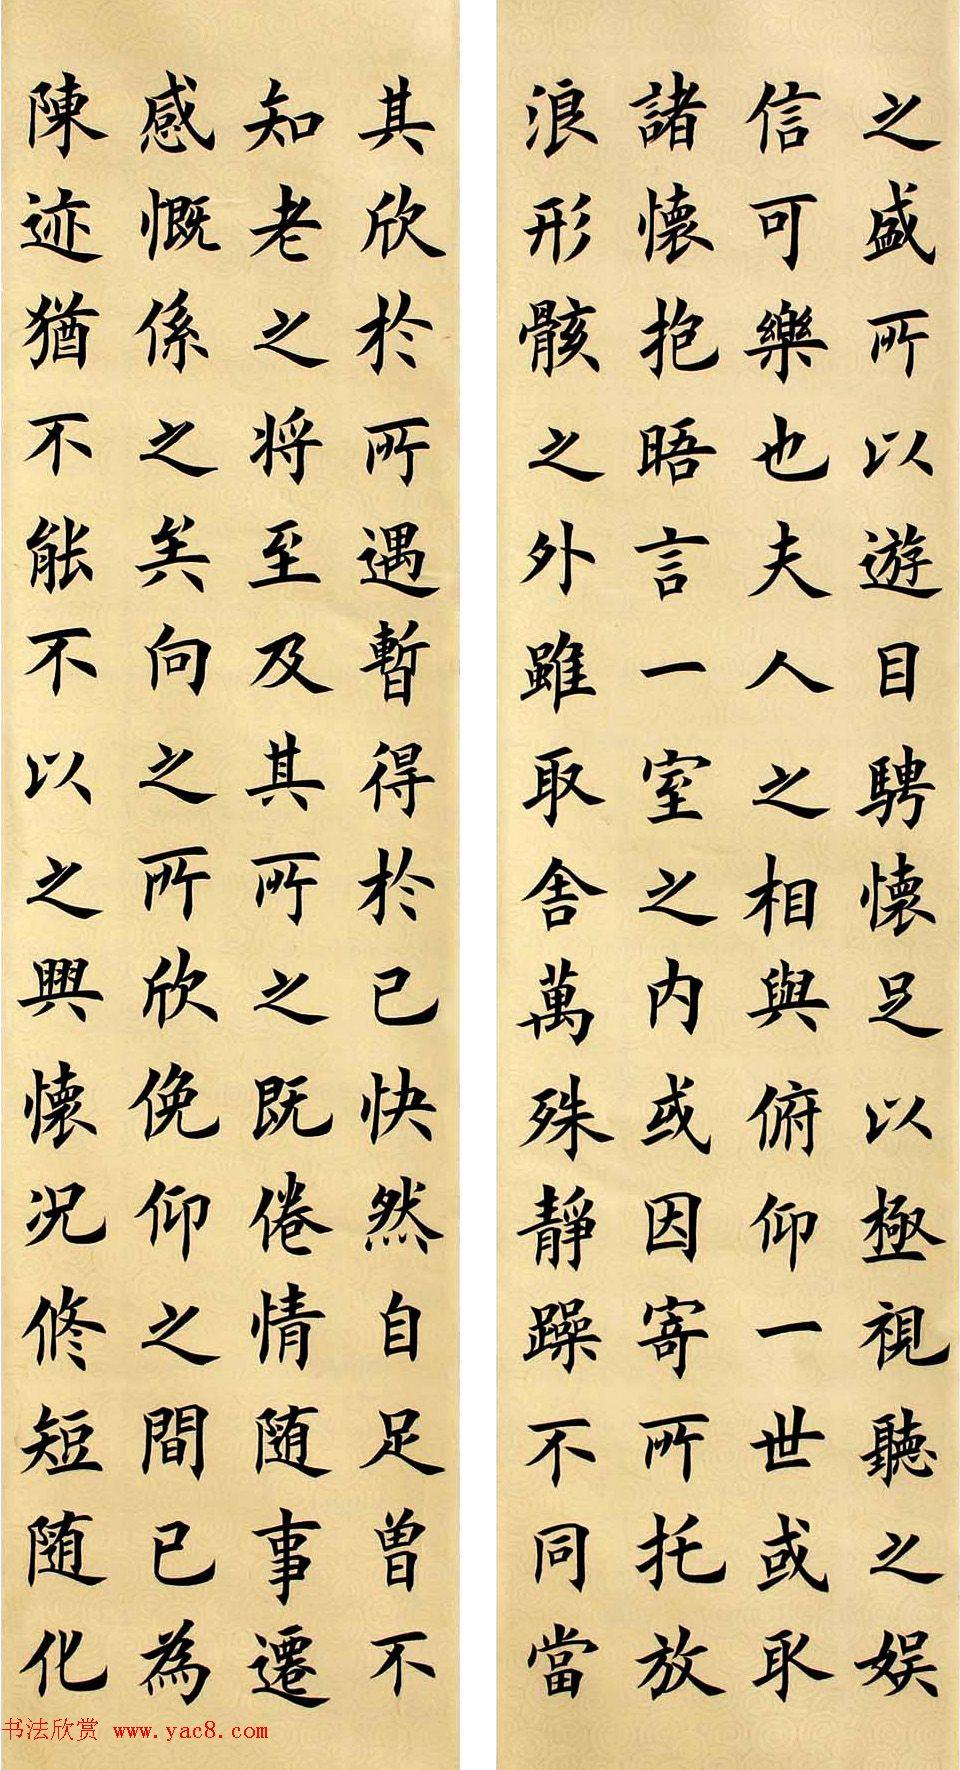 之盛所以遊目騁懷足以極視聽之娱
信可樂也夫人之相與俯仰一世或取
諸懷抱晤言一室之内或因寄所托放
浪形骸之外雖取舍萬殊靜躁不同當
其欣於所遇暫得於己快然自足曾不
知老之将至及其所之既倦情随事遷
感慨係之矣向之所欣俛仰之間已為
陳迹猶不能不以之興懷况修短随化
书法欣赏 www.yac8.com